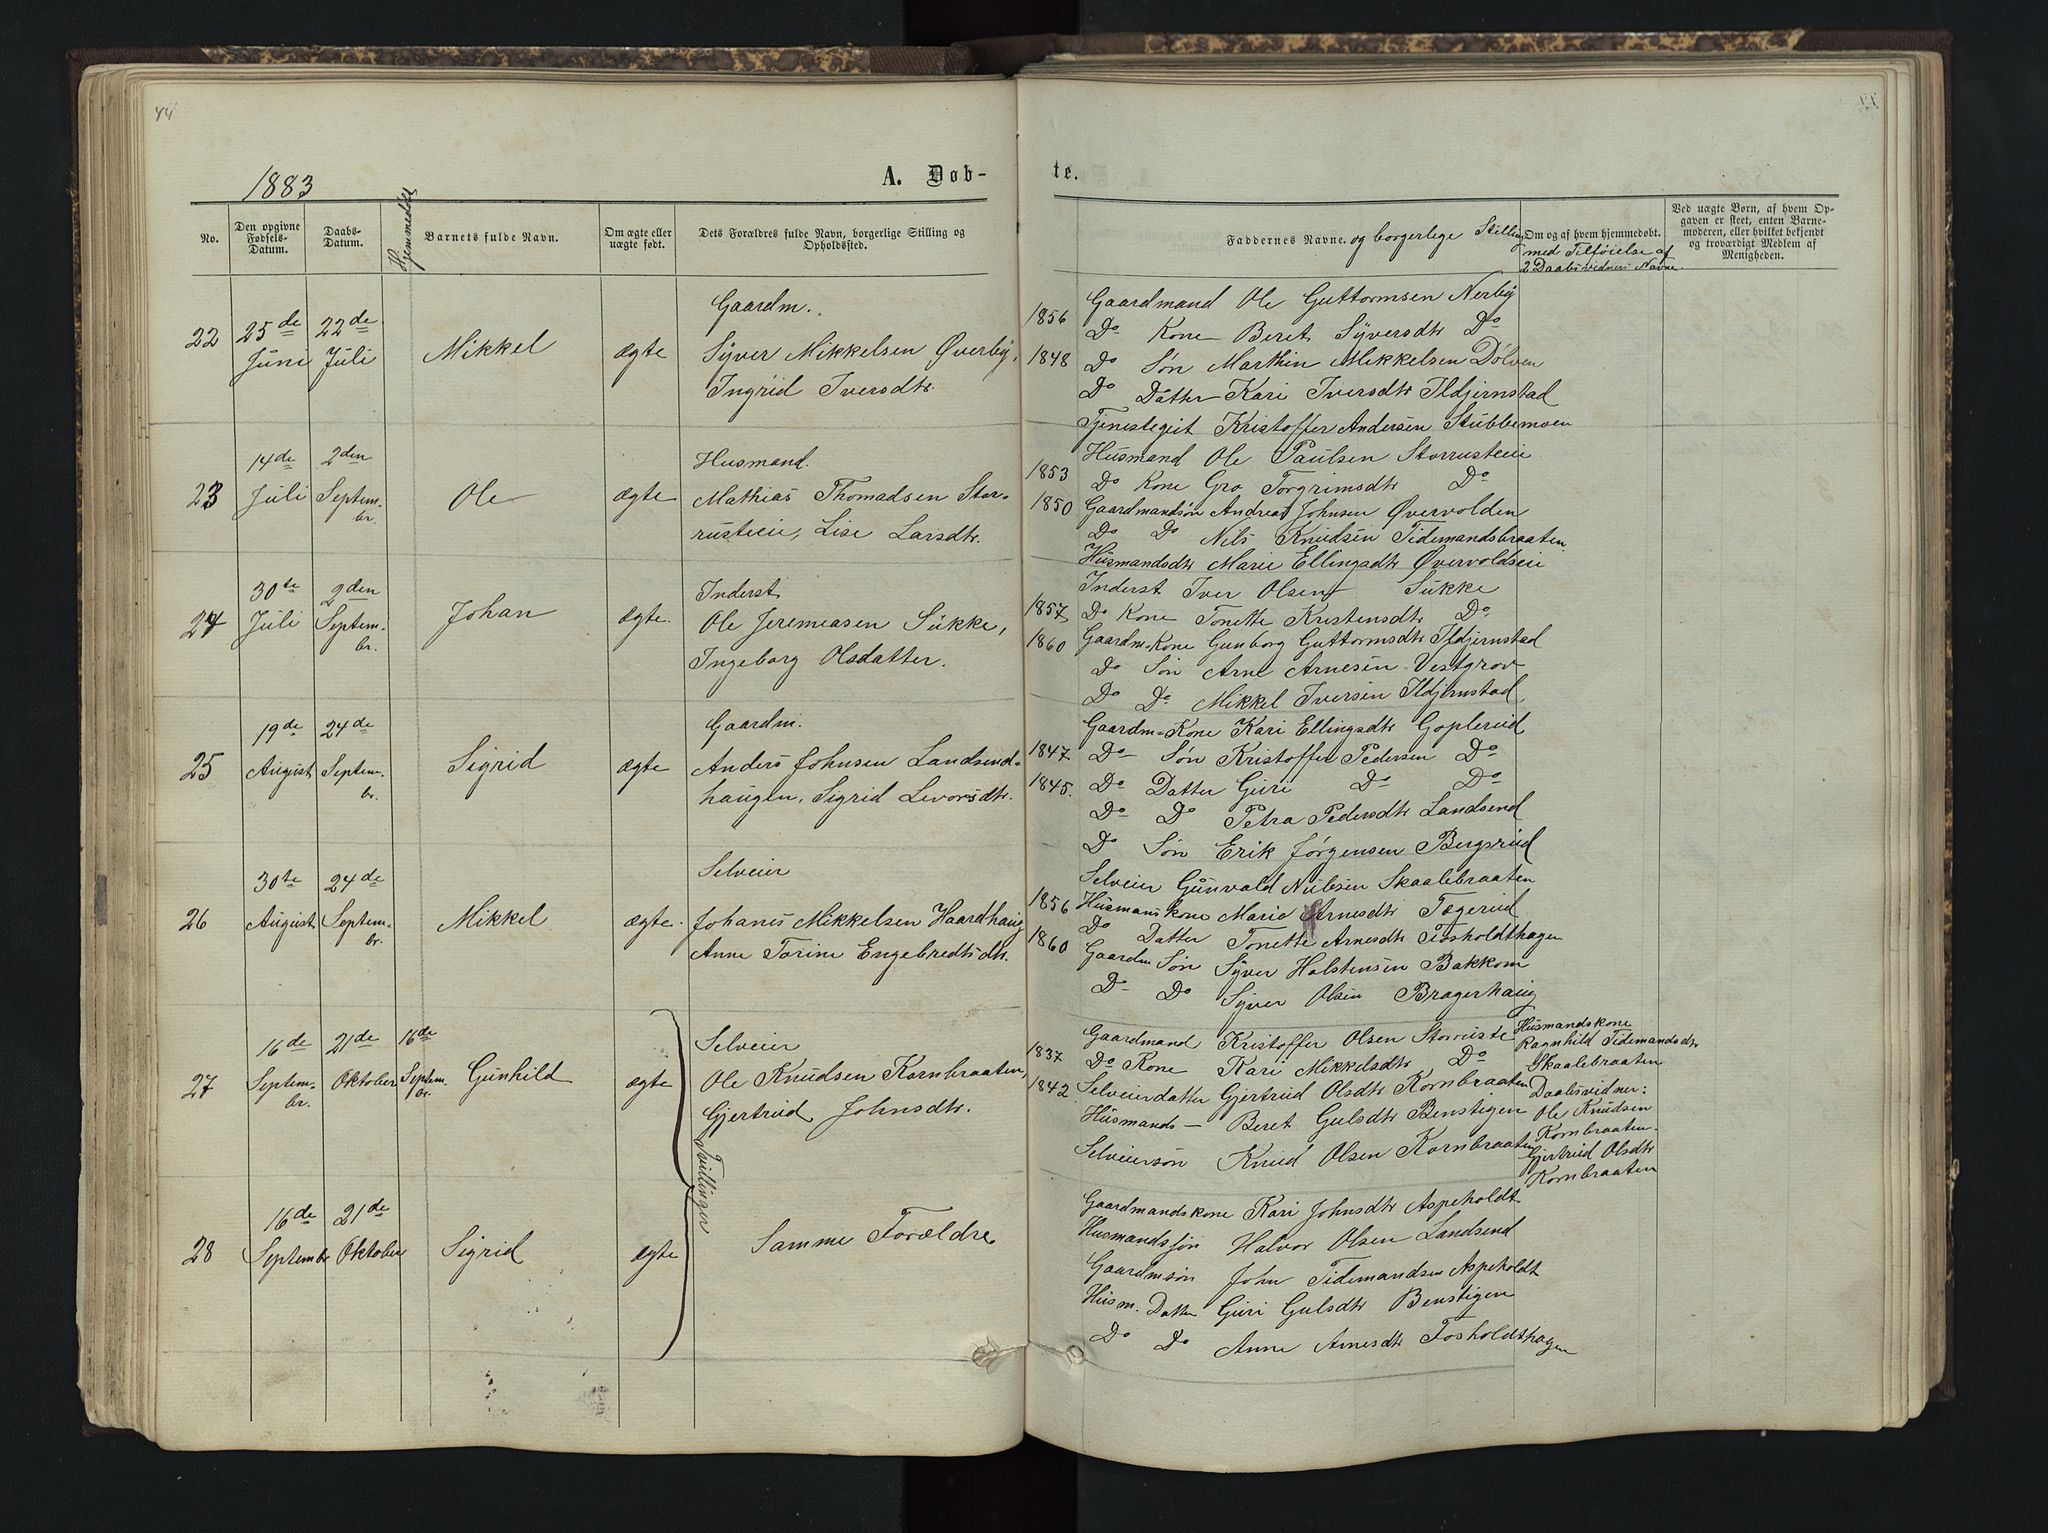 44
1883
A. Døb-
No.
Den opgivne Fødsels-Datum.
Daabs-Datum.
Hjemmedøbt
Barnets fulde Navn.
Om ægte eller uægte født.
Dets Forældres fulde Navn, borgerlige Stilling og Opholdssted.
22
25de Juni
22de Juli
Mikkel
ægte
Gaardm.
Syver Mikkelsen Øverby,
Ingrid Iversdtr.
23
14de Juli
2den Septem-
br.
Ole
ægte
Husmand.
Mathias Thomadsen Stor-
rusteie, Lise Larsdtr.
24
30te Juli
2den Septem-
br.
Johan
ægte.
Inderst
Ole Jeremiasen Sukke,
Ingeborg Olsdatter.
25
19de August
24de Septem-
br.
Sigrid
ægte
Gaardm.
Anders Johnsen Landsend-
haugen, Sigrid Levorsdtr.
26
30te August
24de Septem-
br.
Mikkel
ægte.
Selveier
Johanes Mikkelsen Haardhaug
Anne Torine Engebredtsdtr.
27
16de Septem-
br.
21de Oktober
16de Septem-
br.
Gunhild
ægte
Selveier
Ole Knudsen Kornbraaten,
Gjertrud Johnsdtr.
Tvillinger
28
16de Septembr
21de Oktober
Sigrid
ægte
Samme Forældre
te.
Faddernes Navne. og borgerlige Stilling
Om og af hvem hjemmedøbt.
med Tilføielse af
2 Daabsvidners Navne.
Ved uægte Børn, af hvem Op-
gaven er skeet, enten Barne-
moderen, eller hvilket bekjendt
og troværdigt Medlem af
Menigheden.
Gaardmand Ole Guttormsen Nerby
1856 Do Kone Beret Syversdtr Do
1848 Do Søn Marthin Mikkelsen Dølven
Do Datter Kari Iversdtr Ildjernstad
Tjenestegut Kristoffer Andersen Stubbemoen
Husmand Ole Paulsen Storrusteie
1853 Do Kone Gro Torgrimsdtr Do
1850 Gaardmandsøn Andreas Johnsen Øvervolden
Do Do Nils Knudsen Tidemandsbraaten.
Husmandsdtr Marie Ellingsdtr Øvervoldseie
Inderst Iver Olsen Sukke
1857 Do Kone Tonette Kristensdtr Do
1860 Gaardm-Kone Gunborg Guttormsdtr Ildjernstad
Do Søn Arne Arnesen Vestgrov
Do Do Mikkel Iversen Ildjernstad
Gaardm-Kone Kari Ellingsdtr Goplerud
1847 Do Søn Kristoffer Pedersen Do
1845. Do Datter Guri Do Do
Do Do Petra Pedersdtr Landsend
Do Søn Erik Jørgensen Bergsrud
Selveier Gunvald Nielsen Skaalebraaten
1856 Husmanskone Marie Arnesdtr Tøgerud
1860 Do Datter Tonette Arnesdtr Fosholdthagen
Gaardm Søn Syver Halstensen Bakkom
Do Do Syver Olsen Bragerhaug
Gaardmand Kristoffer Olsen Storruste
1837 Do Kone Kari Mikkelsdtr Do
1842. Selveierdatter Gjertrud Olsdtr Kornbraaten
Husmands — Beret Gulsdtr Benstigen
Selveiersøn Knud Olsen Kornbraaten
Husmandskone
Ragnhild Tidemandsdtr
Skaalebraaten
Daabsvidner:
Ole Knudsen
Kornbraaten.
Gjertrud Olsdtr
Kornbraaten
Gaardmandskone Kari Johnsdtr Aspeholdt
Husmandssøn Halvor Olsen Landsend
Gaardmsøn John Tidemandsen Aspeholdt
Husm. Datter Guri Gulsdtr Benstigen
Do Do Anne Arnesdtr Fosholdthagen